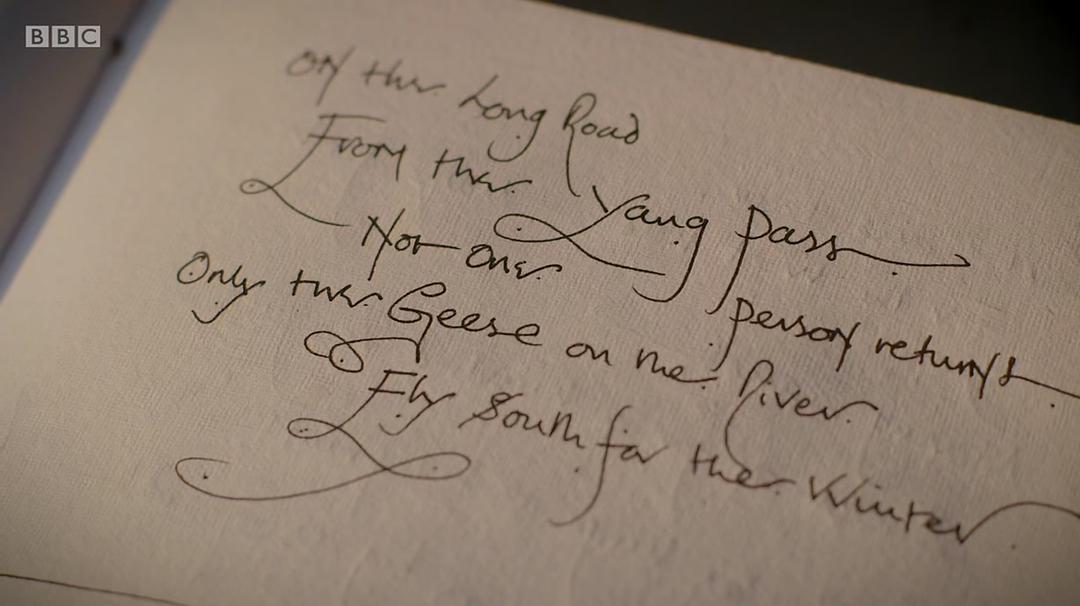 BBC
On the Long Road
From the Yang Pass
Not One person returns
Only the Geese on the River
Fly South for the Winter